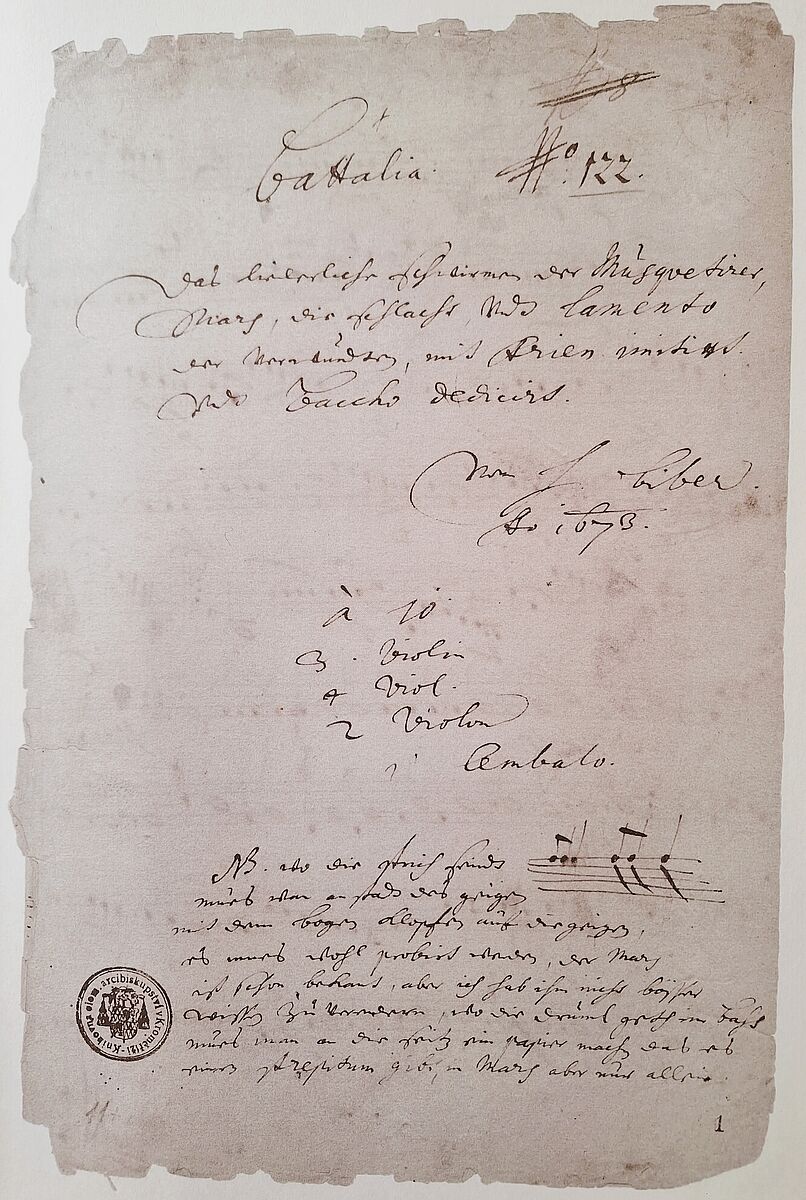 Battalia. No. 122.
Das liederliche schwirmen der Musquetirer,
Mars, die schlacht, Undt lamento
der Verwundten, mit Arien imitirt
Undt Baccho dedicirt.
Von H. Biber.
Ao 1673.
à 10
3. Violin
4 Viol.
2 Violon
1 Cembalo.
NB. wo die strich seindt
mues man anstadt des geigen
mit dem bogen klopfen auf die geigen,
es mues wohl probirt werden, der Mars
ist schon bekant, aber ich hab ihn nicht bösser
wissen zu verwenden, wo die druml geth im Bass
mues man an die seitz ein papier machn das es
einen strepitum gibt, in Mars aber nur allein.
Knihovna arcibiskupství v Kroměříži
11
1